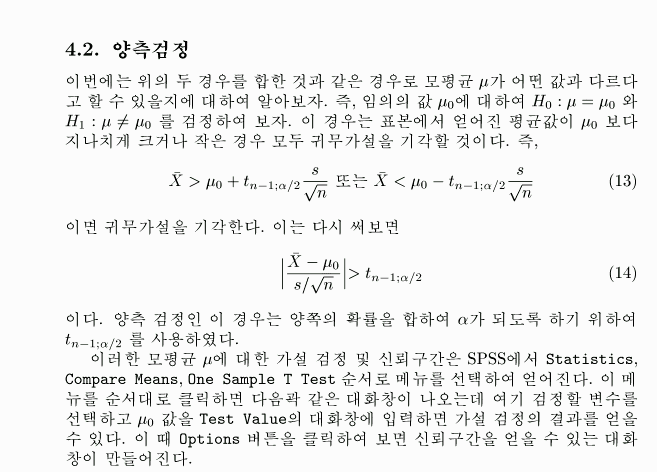 4.2. 양측검정
이번에는 위의 두 경우를 합한 것과 같은 경우로 모평균 μ가 어떤 값과 다르다
고 할 수 있을지에 대하여 알아보자. 즉, 임의의 값 μ₀에 대하여 H₀ : μ = μ₀ 와
H₁ : μ ≠ μ₀ 를 검정하여 보자. 이 경우는 표본에서 얻어진 평균값이 μ₀ 보다
지나치게 크거나 작은 경우 모두 귀무가설을 기각할 것이다. 즉,
X̄ > μ₀ + t_{n−1;α/2} s/√n 또는 X̄ < μ₀ − t_{n−1;α/2} s/√n (13)
이면 귀무가설을 기각한다. 이는 다시 써보면
|(X̄ − μ₀)/(s/√n)| > t_{n−1;α/2} (14)
이다. 양측 검정인 이 경우는 양쪽의 확률을 합하여 α가 되도록 하기 위하여
t_{n−1;α/2} 를 사용하였다.
이러한 모평균 μ에 대한 가설 검정 및 신뢰구간은 SPSS에서 Statistics,
Compare Means, One Sample T Test 순서로 메뉴를 선택하여 얻어진다. 이 메
뉴를 순서대로 클릭하면 다음곽 같은 대화창이 나오는데 여기 검정할 변수를
선택하고 μ₀ 값을 Test Value의 대화창에 입력하면 가설 검정의 결과를 얻을
수 있다. 이 때 Options 버튼을 클릭하여 보면 신뢰구간을 얻을 수 있는 대화
창이 만들어진다.